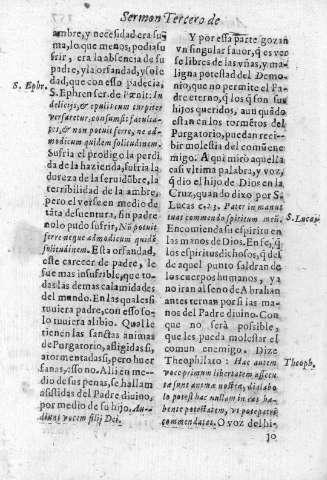 Sermon Tercero de
ambre, y necesidad era su
ma, lo que menos, podia su
frir, era la absencia de su
padre, y la orfandad, y sole
dad, que con esso padecia,
S. Ephr.
S. Ephren ser. de Pœnit: In
delicijs, & epulis cum turpiter
versaretur, consumptis faculta-
pes, & non potuit ferre, ne ad
modicum quidem solitudinem.
Sufria el prodigo la perdi
da de la hazienda, sufria la
dureza de la seruidũbre, la
terribilidad de la ambre,
pero el verse en medio de
tãta desuentura, sin padre
nolo pudo sufrir, Nũ potuit
ferre neque ad modicum quidẽ
solitudinem. Esta orfandad,
este carecer de padre, le
fue mas insufrible, que to-
das las demas calamidades
del mundo. En las quales si
tuviera padre, con esso so-
lo tuviera alibio. Qual le
tienen las sanctas animas
de Purgatorio, afligidas si,
atormentadas si, pero huer
fanas, esso no. Alli en me-
dio de sus penas, se hallam
assistidas del Padre divino,
por medio de su hijo. Au-
diunt vocem filij Dei.
Y por esta parte gozan
vn singular fauor, q̃ es ver
se libres de las vñas, y ma-
ligna potestad del Demo-
nio, que no permite el Pa-
dre eterno, q̃ los q̃ son sus
hijos queridos, aun quãdo
estan en los tormẽtos del
Purgatorio, puedan reci-
bir molestia del comũ ene
migo. A qui mirò aquella
casi vltima palabra, y voz,
q̃ dio el hijo de Dios en la
Cruz, quando dixo por S.
Lucas c. 23. Pater in manus
tuas commendo spiritum meũ.
S. Lucas
Encomienda su espiritu en
las manos de Dios. En fe, q̃
los espiritus dichosos, q̃ des
de aquel punto saldran de
los cuerpos humanos, ya
no iran al seno de Abrahan
antes tornan por si las ma-
nos del Padre divino. Con
que no serà possible,
que les pueda molestar el
comun enemigo. Dize
Theophilato: Hac autem
Theoph,
voce primum libertatem assecu
ta sunt animæ nostræ, diabolo
potest hac nullam in eas ha-
bente potestatem, vt pote patri
commendatas. O voz del hi-
jo